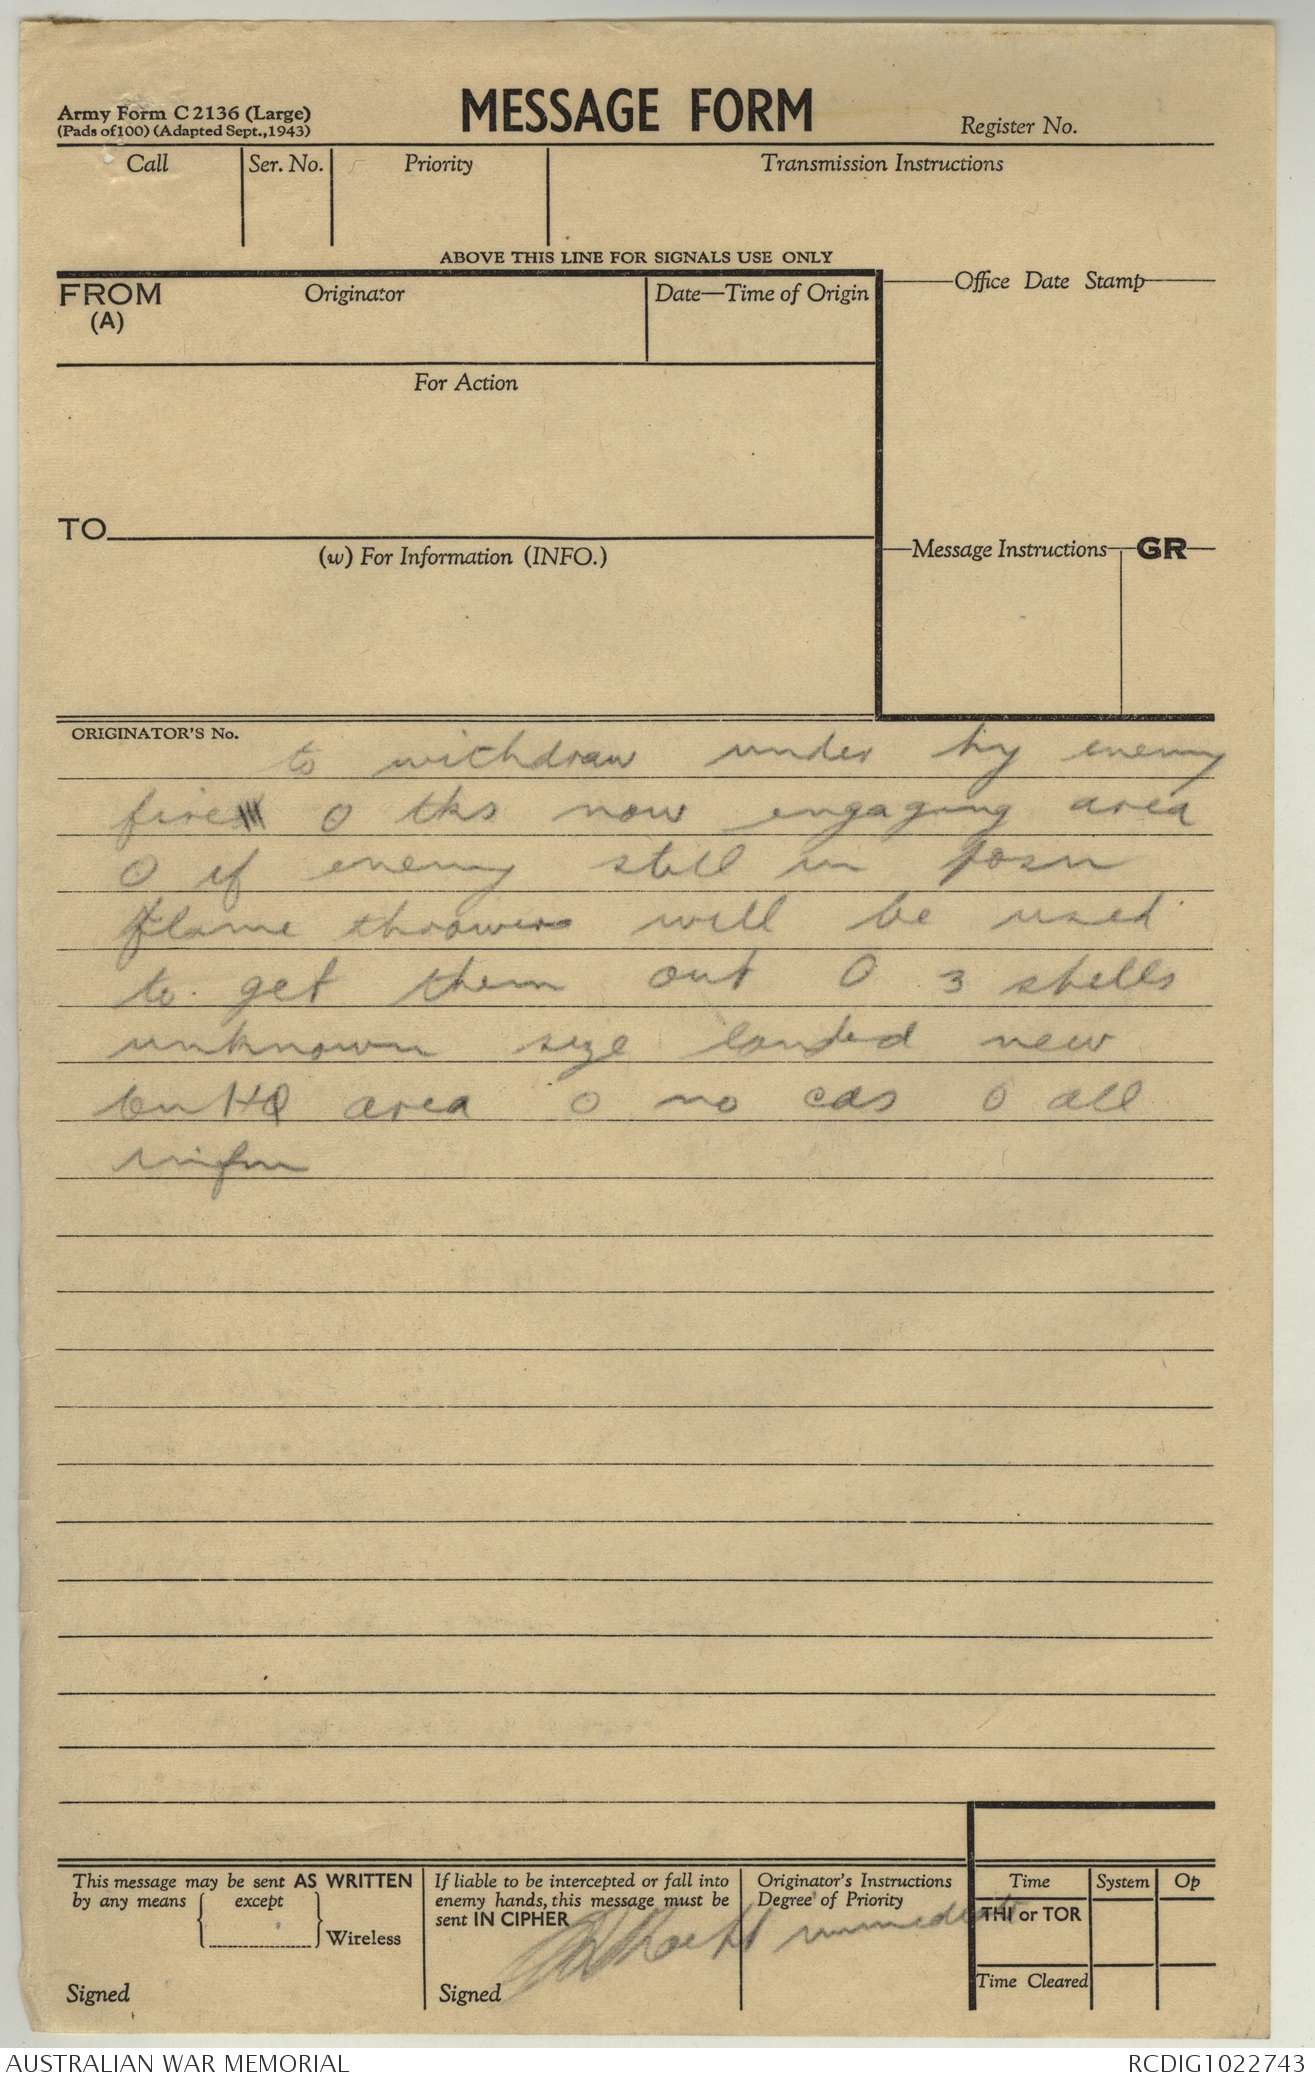 Army Form C 2136 (Large)
(Pads of 100) (Adapted Sept., 1943)
MESSAGE FORM
Register No.
Call
Ser. No.
Priority
Transmission Instructions
ABOVE THIS LINE FOR SIGNALS USE ONLY
FROM
(A)
Originator
Date—Time of Origin
Office Date Stamp
For Action
TO
(w) For Information (INFO.)
Message Instructions
GR
ORIGINATOR'S No.
to withdraw under hy enemy
fire O tks now engaging area
O if enemy still in posn
flame throwers will be used
to get them out O 3 shells
unknown size landed new
bn HQ area O no cas O all
infm
This message may be sent AS WRITTEN
by any means except
Wireless
Signed
If liable to be intercepted or fall into
enemy hands, this message must be
sent IN CIPHER
Signed
Originator's Instructions
Degree of Priority
immediate
Time
System
Op
THI or TOR
Time Cleared
AUSTRALIAN WAR MEMORIAL
RCDIG1022743